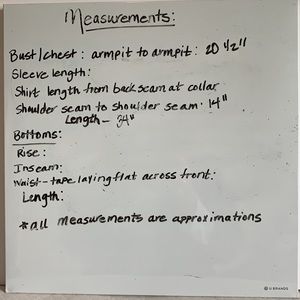 Measurements:
Bust/chest: armpit to armpit: 20 1/2"
Sleeve length:
Shirt length from back seam at collar
Shoulder seam to shoulder seam: 14"
Length - 34"
Bottoms:
Rise:
Inseam:
Waist - tape laying flat across front:
Length:
*all measurements are approximations
U BRANDS